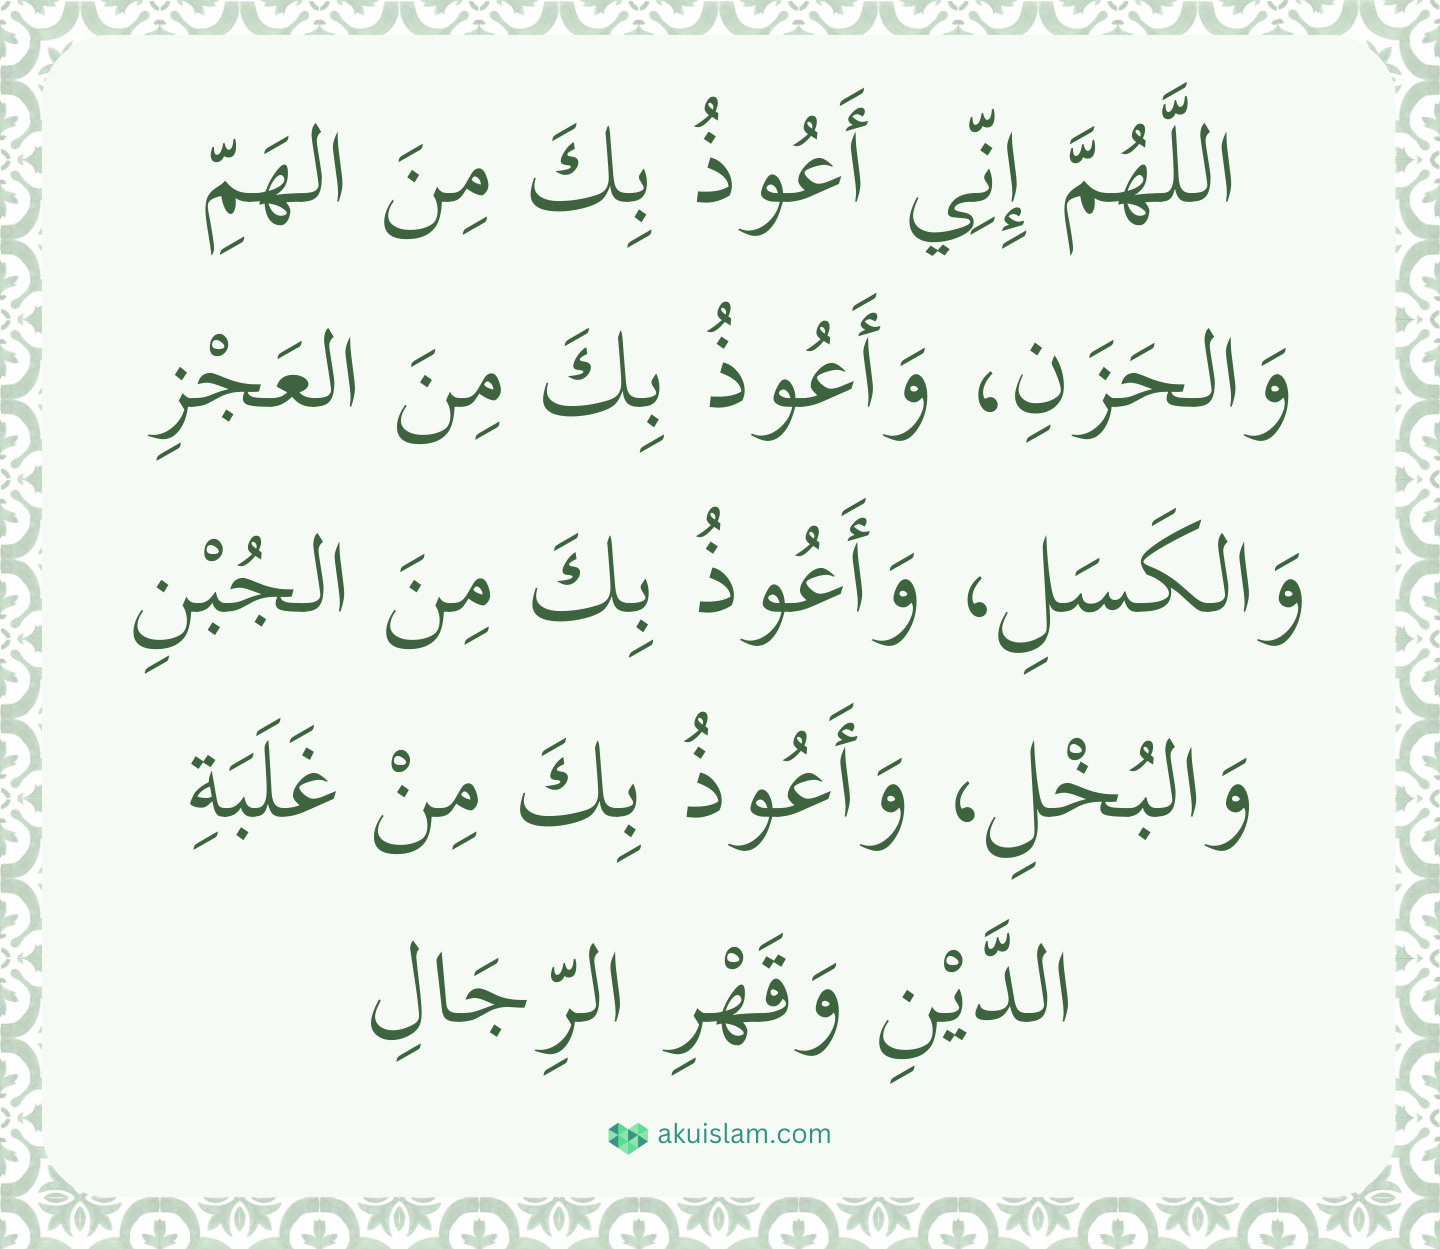 اللَّهُمَّ إِنِّي أَعُوذُ بِكَ مِنَ الهَمِّ
وَالحَزَنِ، وَأَعُوذُ بِكَ مِنَ العَجْزِ
وَالكَسَلِ، وَأَعُوذُ بِكَ مِنَ الجُبْنِ
وَالبُخْلِ، وَأَعُوذُ بِكَ مِنْ غَلَبَةِ
الدَّيْنِ وَقَهْرِ الرِّجَالِ
akuislam.com